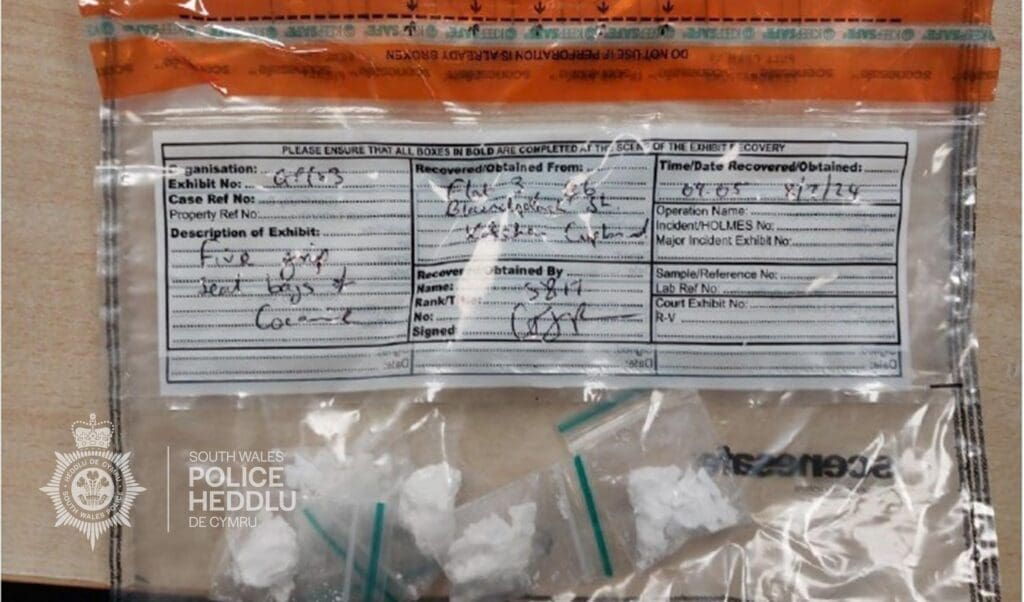 KEEPSAFE
DO NOT USE IF PERFORATION IS ALREADY BROKEN
scenesafe
PLEASE ENSURE THAT ALL BOXES IN BOLD ARE COMPLETED AT THE SCENE OF THE EXHIBIT RECOVERY
Organisation:
Exhibit No:
Case Ref No:
Property Ref No:
Description of Exhibit:
Five grip
seal bags of
Cocaine
Recovered/Obtained From:
Flat 3
St
Kitchen Cupboard
Recovered/Obtained By
Name: 5817
Rank/
No:
Signed
Time/Date Recovered/Obtained:
07.05
Operation Name:
Incident/HOLMES No:
Major Incident Exhibit No:
Sample/Reference No:
Lab Ref No:
Court Exhibit No:
R-V
Date:
Date:
Date:
scenesafe
SOUTH WALES
POLICE
HEDDLU
DE CYMRU
HEDDLU DE CYMRU
SOUTH WALES POLICE